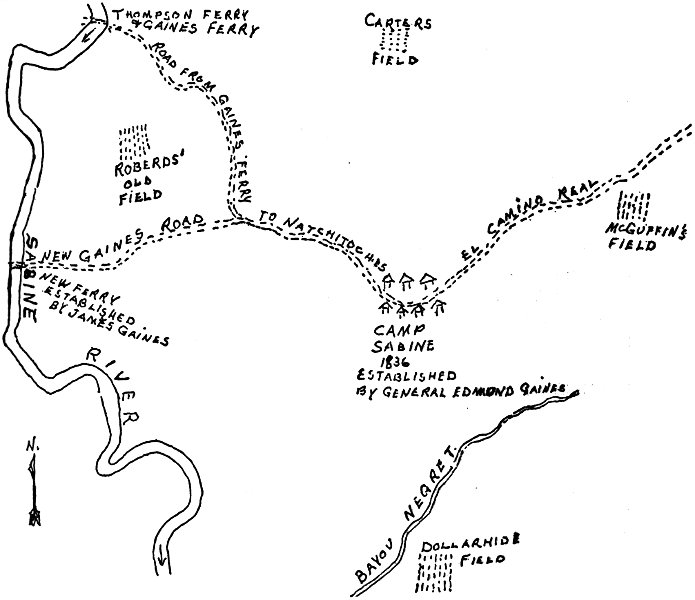 THOMPSON FERRY
& GAINES FERRY
CARTERS
FIELD
ROAD FROM GAINES FERRY
ROBERDS'
OLD
FIELD
EL CAMINO REAL
McGUFFIN'S
FIELD
NEW GAINES ROAD
TO NATCHITOCHES
SABINE RIVER
NEW FERRY
ESTABLISHED
BY JAMES GAINES
CAMP
SABINE
1836
ESTABLISHED
BY GENERAL EDMOND GAINES
N.
BAYOU NEGRET.
DOLLARHIDE
FIELD